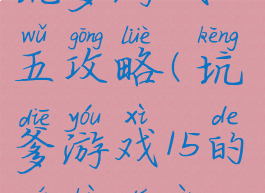 wǔ gōng lüè kēng
五攻略(坑
diē yóu xì de
爹游戏15的